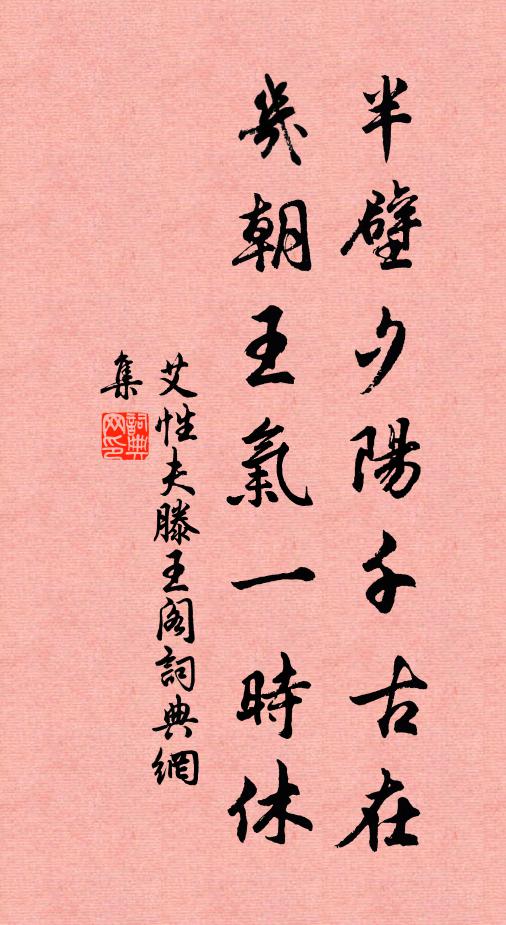 半壁夕陽千古在
幾朝王氣一時休
艾性夫滕王阁詞典網
集
詞典
网印